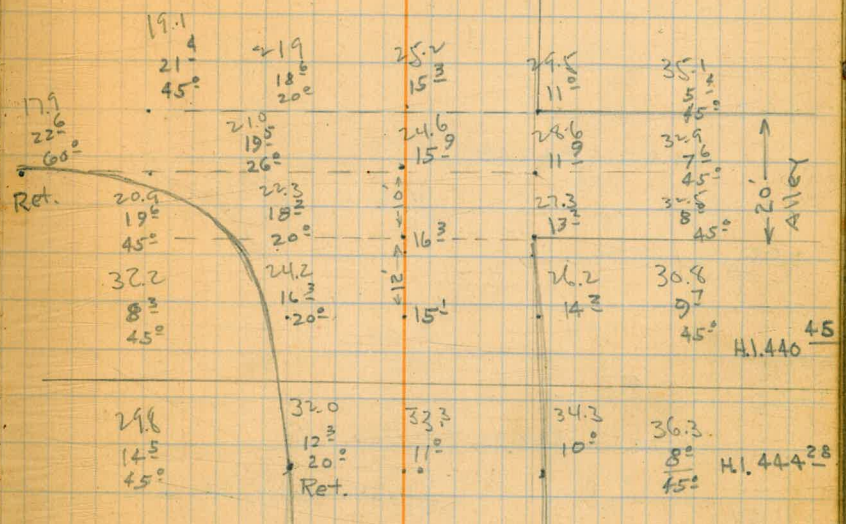 19.1
21⁴
45⁰
21.9
18⁶
20⁰
25.2
15³
29.5
11⁰
35.1
5⁴
45⁰
17.9
22⁶
60⁰
Ret.
21.0
19⁵
26⁰
24.6
15⁹
28.6
11⁹
32.9
7⁶
45⁰
20.9
19⁶
45⁰
22.3
18²
20⁰
10'
16³
27.3
13²
45⁰
20'
Alley
32.2
8³
45⁰
24.2
16³
20⁰
12'
15¹
26.2
14³
30.8
9⁷
45⁰
H.I. 440⁴⁵
29.8
14⁵
45⁰
32.0
12³
20⁰
Ret.
33.3
11⁰
34.3
10⁰
36.3
8⁰
45⁰
H.I. 444²⁸